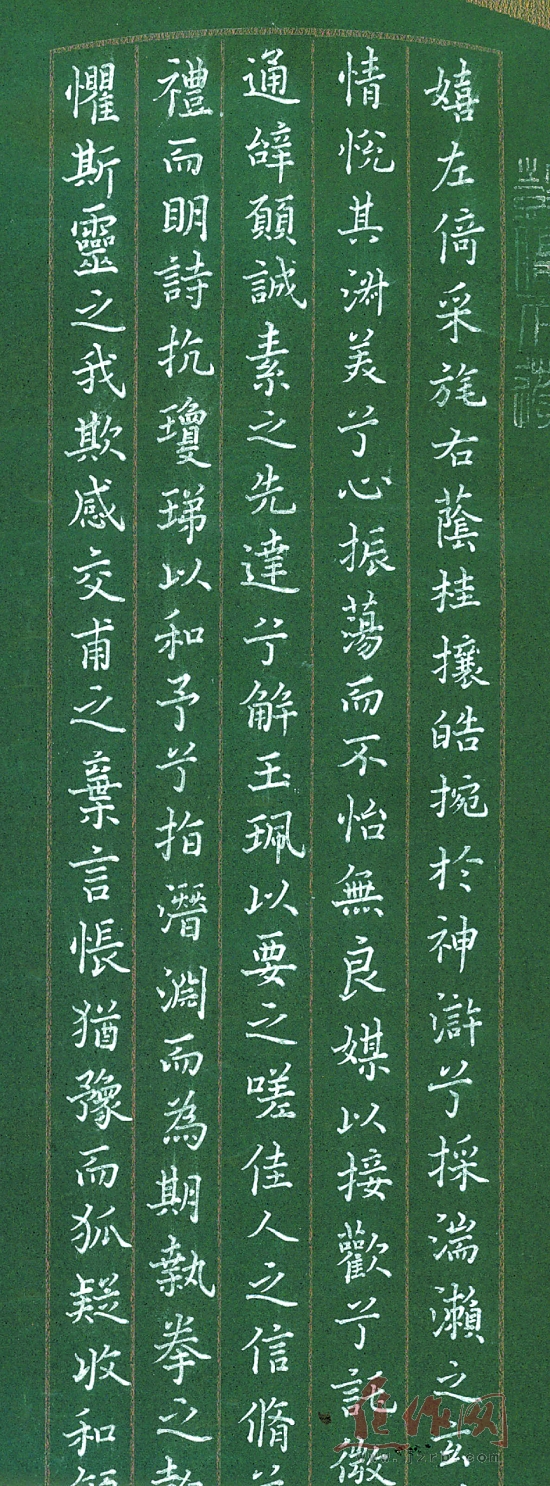 嬉左倚采旄右蔭桂攘皓捥於神滸兮採湍瀨之玄
情悅其淑美兮心振蕩而不怡無良媒以接歡兮託微
通辝願誠素之先達兮解玉珮以要之嗟佳人之信脩
禮而眀詩抗瓊珶以和予兮指潛淵而為期執拳之
懼斯靈之我欺感交甫之棄言悵猶豫而狐疑收和
焦作网